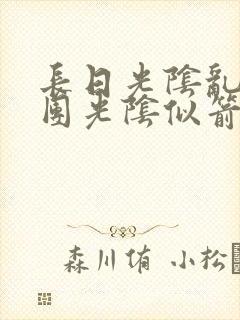 長日光陰亂
團光陰似箭
森川侑 小松